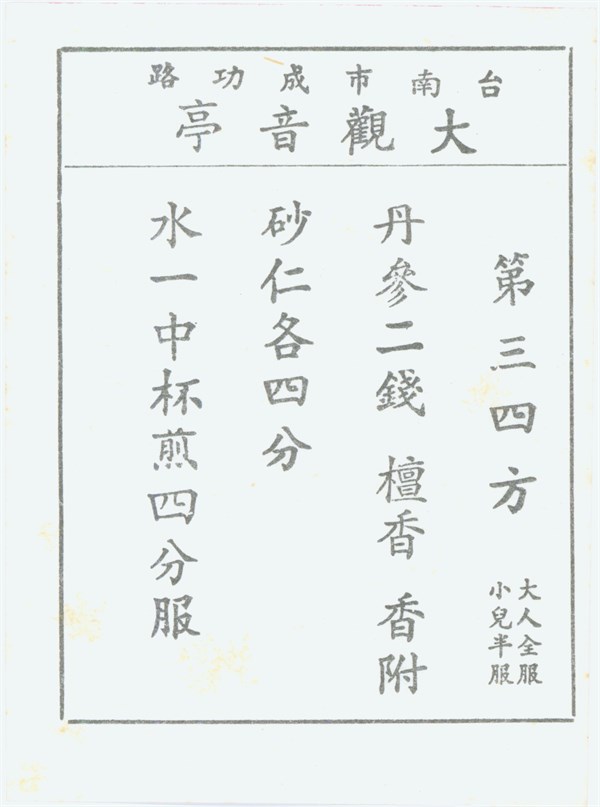 台南市成功路
大觀音亭
第三四方
大人全服
小兒半服
丹參二錢 檀香 香附
砂仁各四分
水一中杯煎四分服